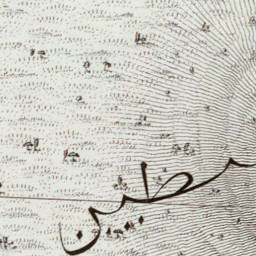 سطين